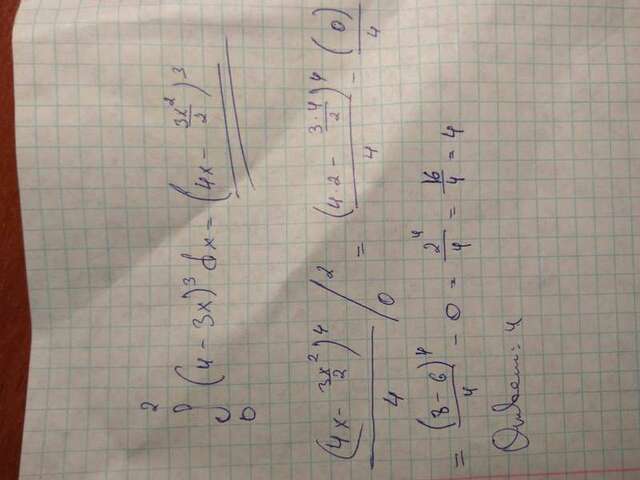 ∫₀² (4 - 3x)³ dx = (4x - 3x²/2)³
(4x - 3x²/2)⁴/4 /₀² = (4·2 - 3·4/2)⁴/4 - (0)/4
= (8 - 6)⁴/4 - 0 = 2⁴/4 = 16/4 = 4
Ответ: 4